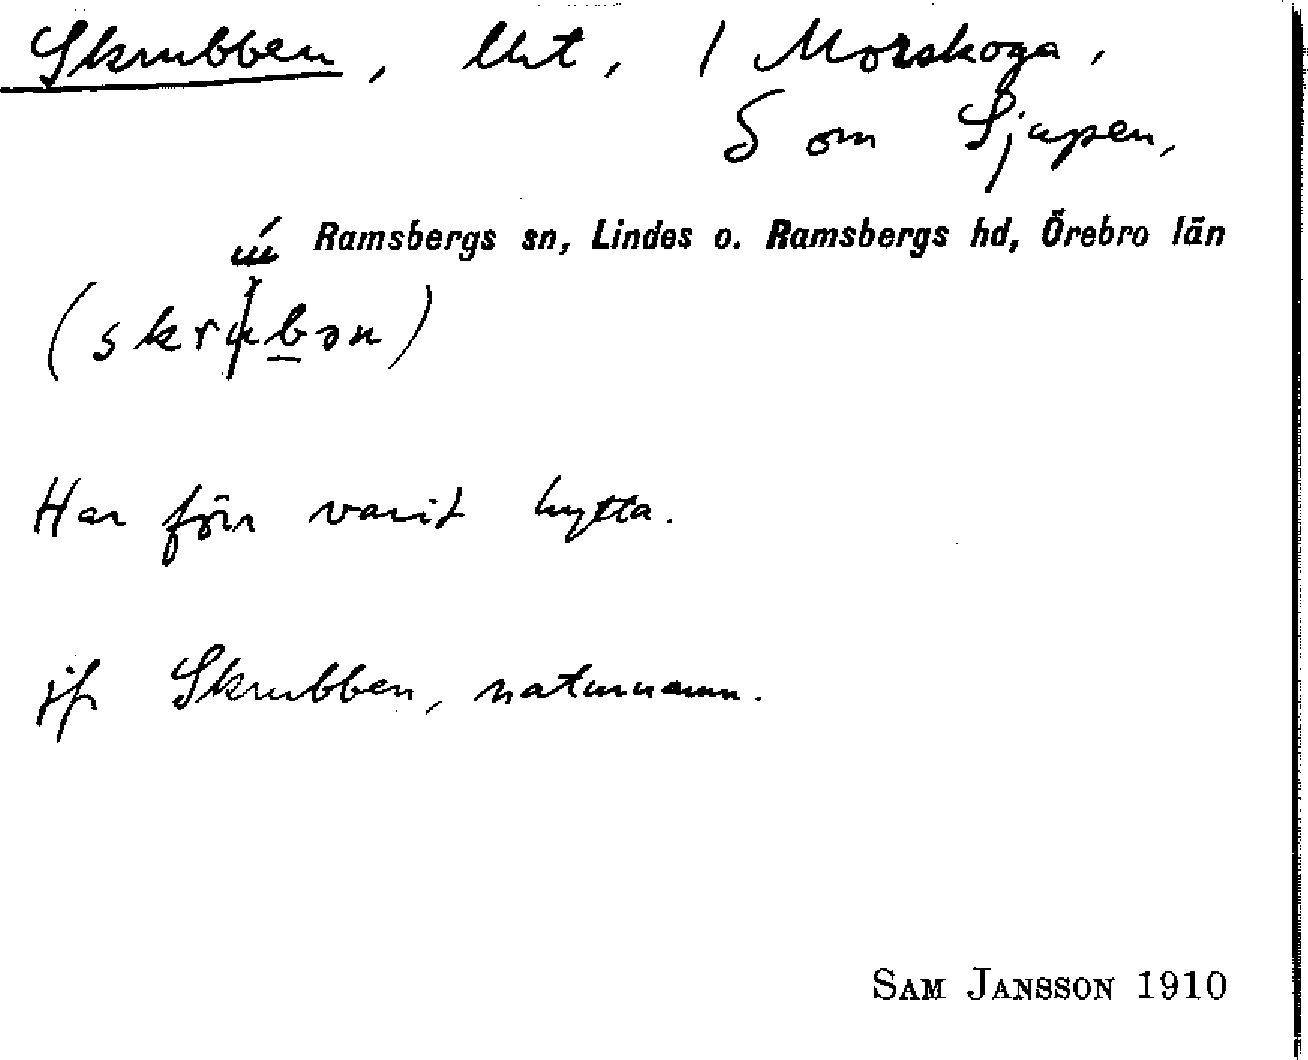 Skrubben, lht, / Morskoga,
S om Sjupen,
Ramsbergs sn, Lindes o. Ramsbergs hd, Örebro län
Har förr varit hytta.
jfr Skrubben, naturnamn.
SAM JANSSON 1910